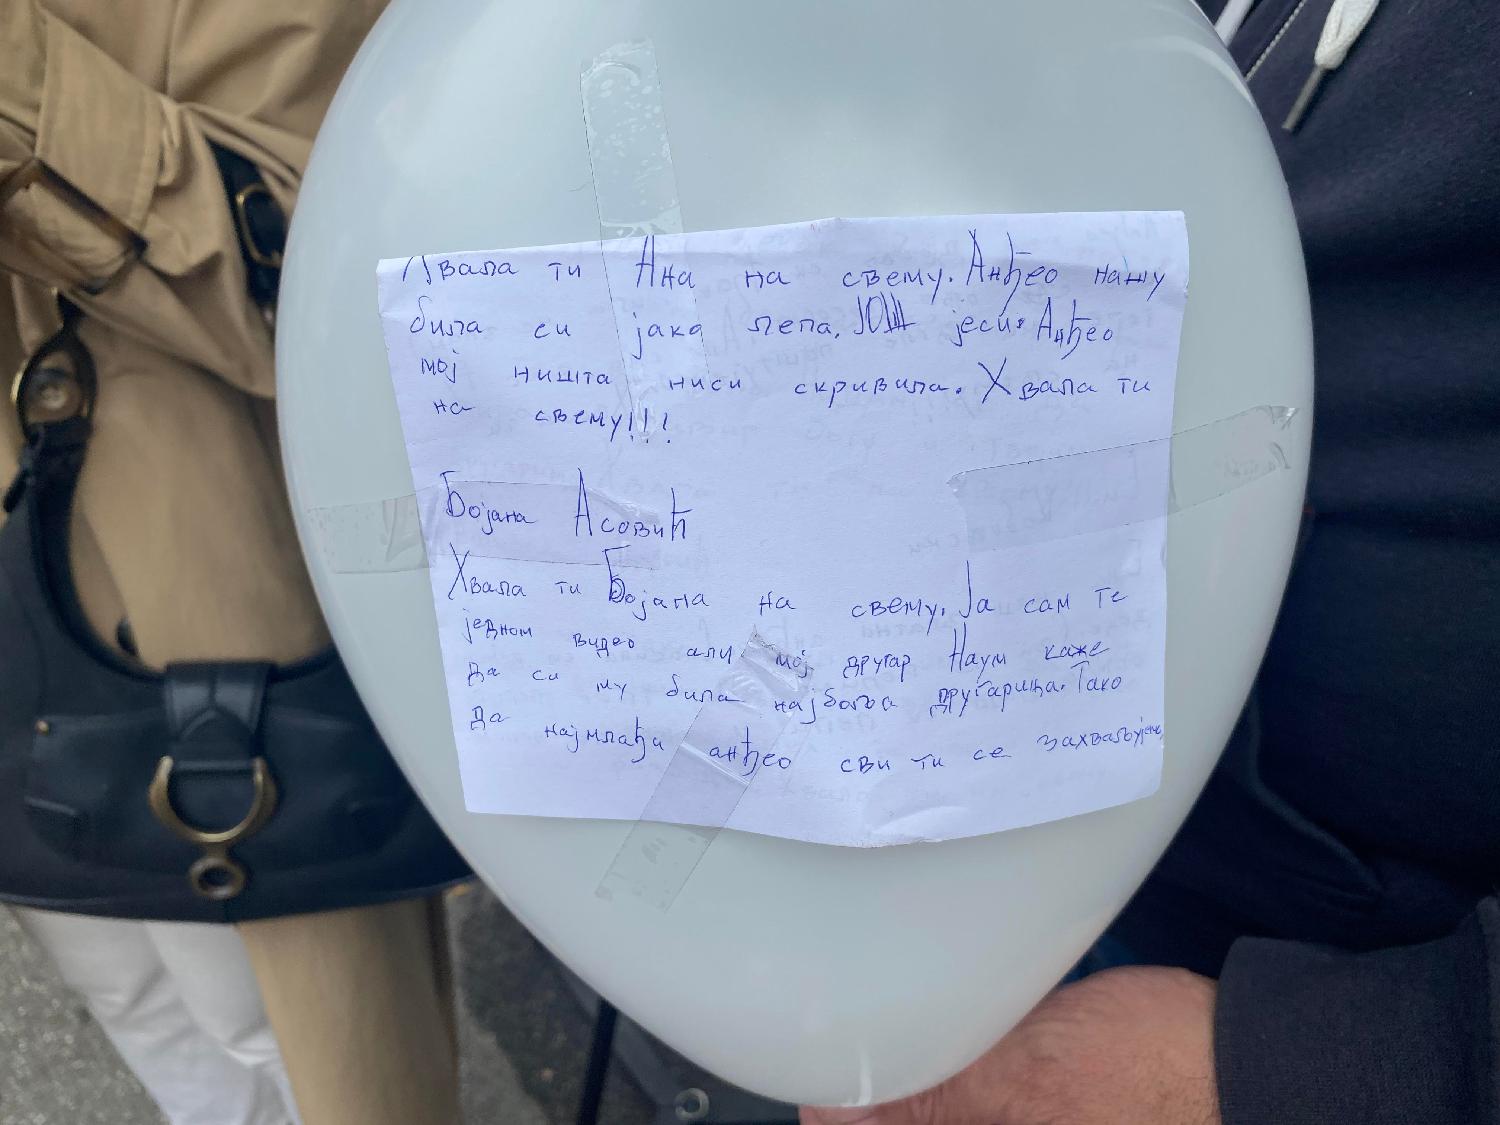 Хвала ти Ана на свему. Анђео нашу
била си јака лепа, ЈОШ јеси. Анђео
мој ништа ниси скривила. Хвала ти
на свему!!!
Бојана Асовић
Хвала ти Бојана на свему. Ја сам те
једном видео али мој другар Наум каже
да си му била најбоља другарица. Тако
да најмлађи анђео сви ти се захваљујемо